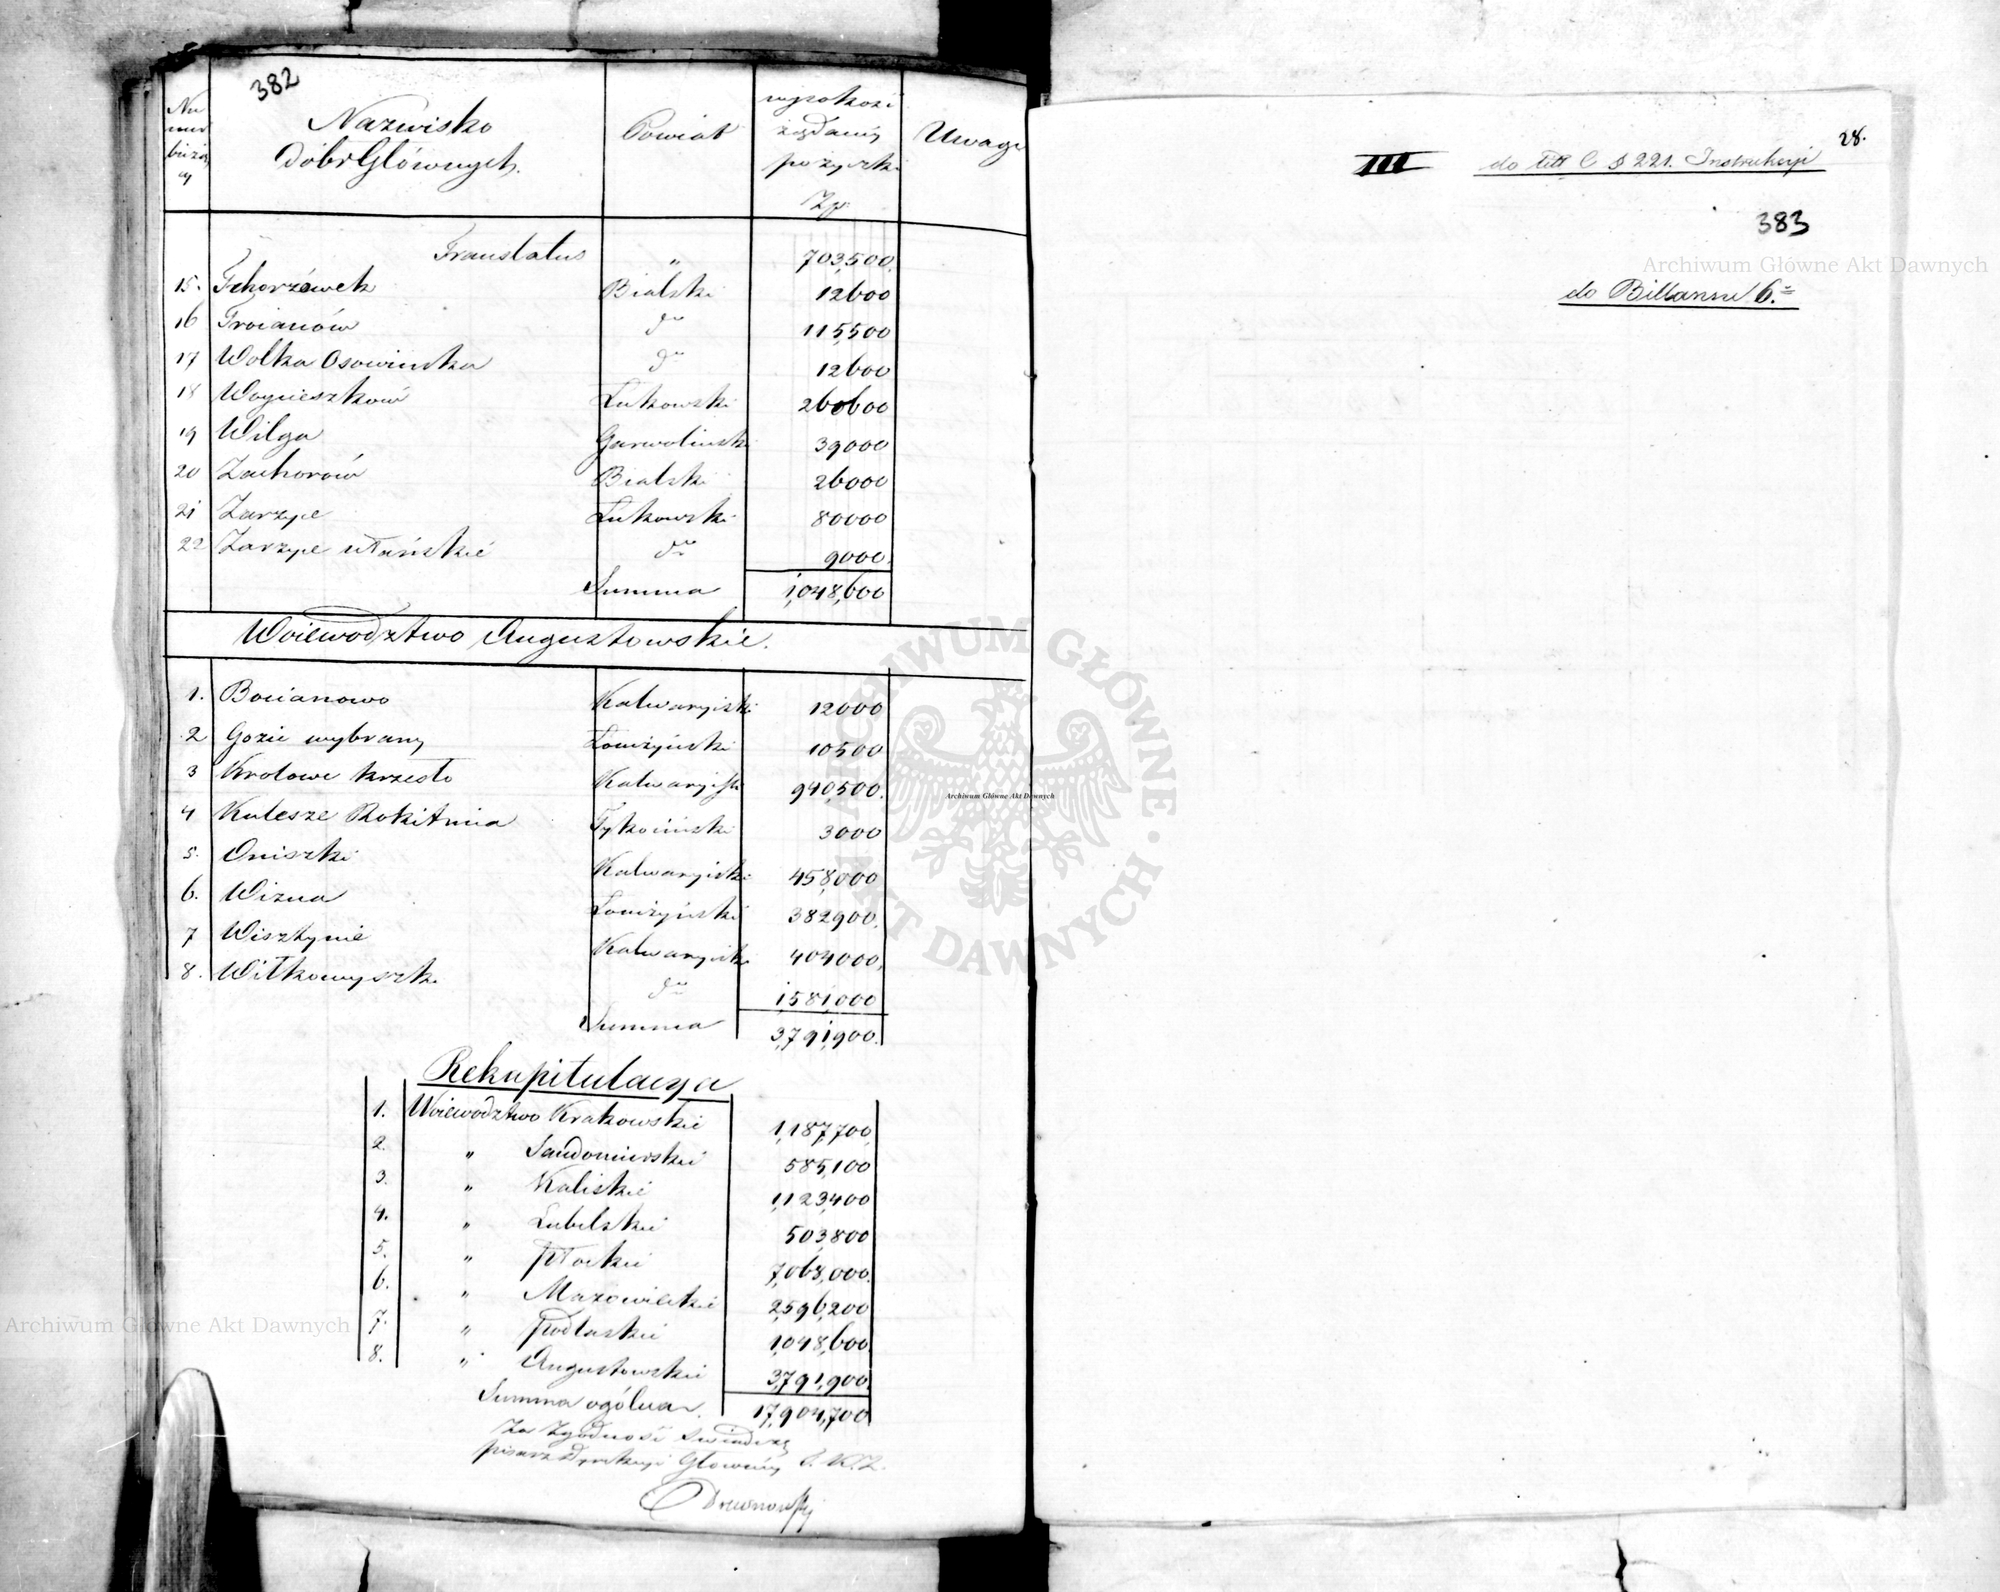 382
Numer bieżący | Nazwisko Dóbr Głównych. | Powiat | wysokość żądaney pożyczki Zp. | Uwagi
Translatus " 703,500.
15. Tchorzéwek Bialski 12600
16 Troianów do 115,500
17 Wolka Osowinska do 12600
18 Woynieszków Łukowski 260600
19 Wilga Garwolinski 39000
20 Zachorów Bialski 26000
21 Zarzyce Łukowski 80000
22 Zarzyce ułańskié do 9000.
Summa 1,048,600
Woiewodztwo Augustowskie.
1. Bocianowo Kalwaryiski 12000
2 Gozie wybrany Łomżyński 10500
3 Krolowe krzesło Kalwaryiski 940,500.
4 Kulesze Rokitnia Tykocinski 3000
5. Oniszki Kalwaryiski 458,000
6. Wizna Łomżyński 382900.
7 Wisztynie Kalwaryiski 404000,
8. Wiłkowyszki do 1,581,000
Summa 3,791,900.
Rekapitulacya
1. Woiewodztwo Krakowskie 1,187,700,
2. " Sandomierskie 585,100
3. " Kaliskié 1,123,400
4. " Lubelskie 503,800
5. " Płockie 7,068,000.
6. " Mazowieckié 2,596,200
7. " Podlaskie 1,048,600
8. " Augustowskie 3,791,900.
Summa ogólna 17,904,700
Za Zgodność Swiadczę
pisarz Dyrekcyi Głowney T. K. Z.
Drewnowski
28.
III do titt C § 221. Instrukcyi
383
do Billansu 6.
Archiwum Główne Akt Dawnych
Archiwum Główne Akt Dawnych
ARCHIWUM GŁÓWNE AKT DAWNYCH
Archiwum Główne Akt Dawnych